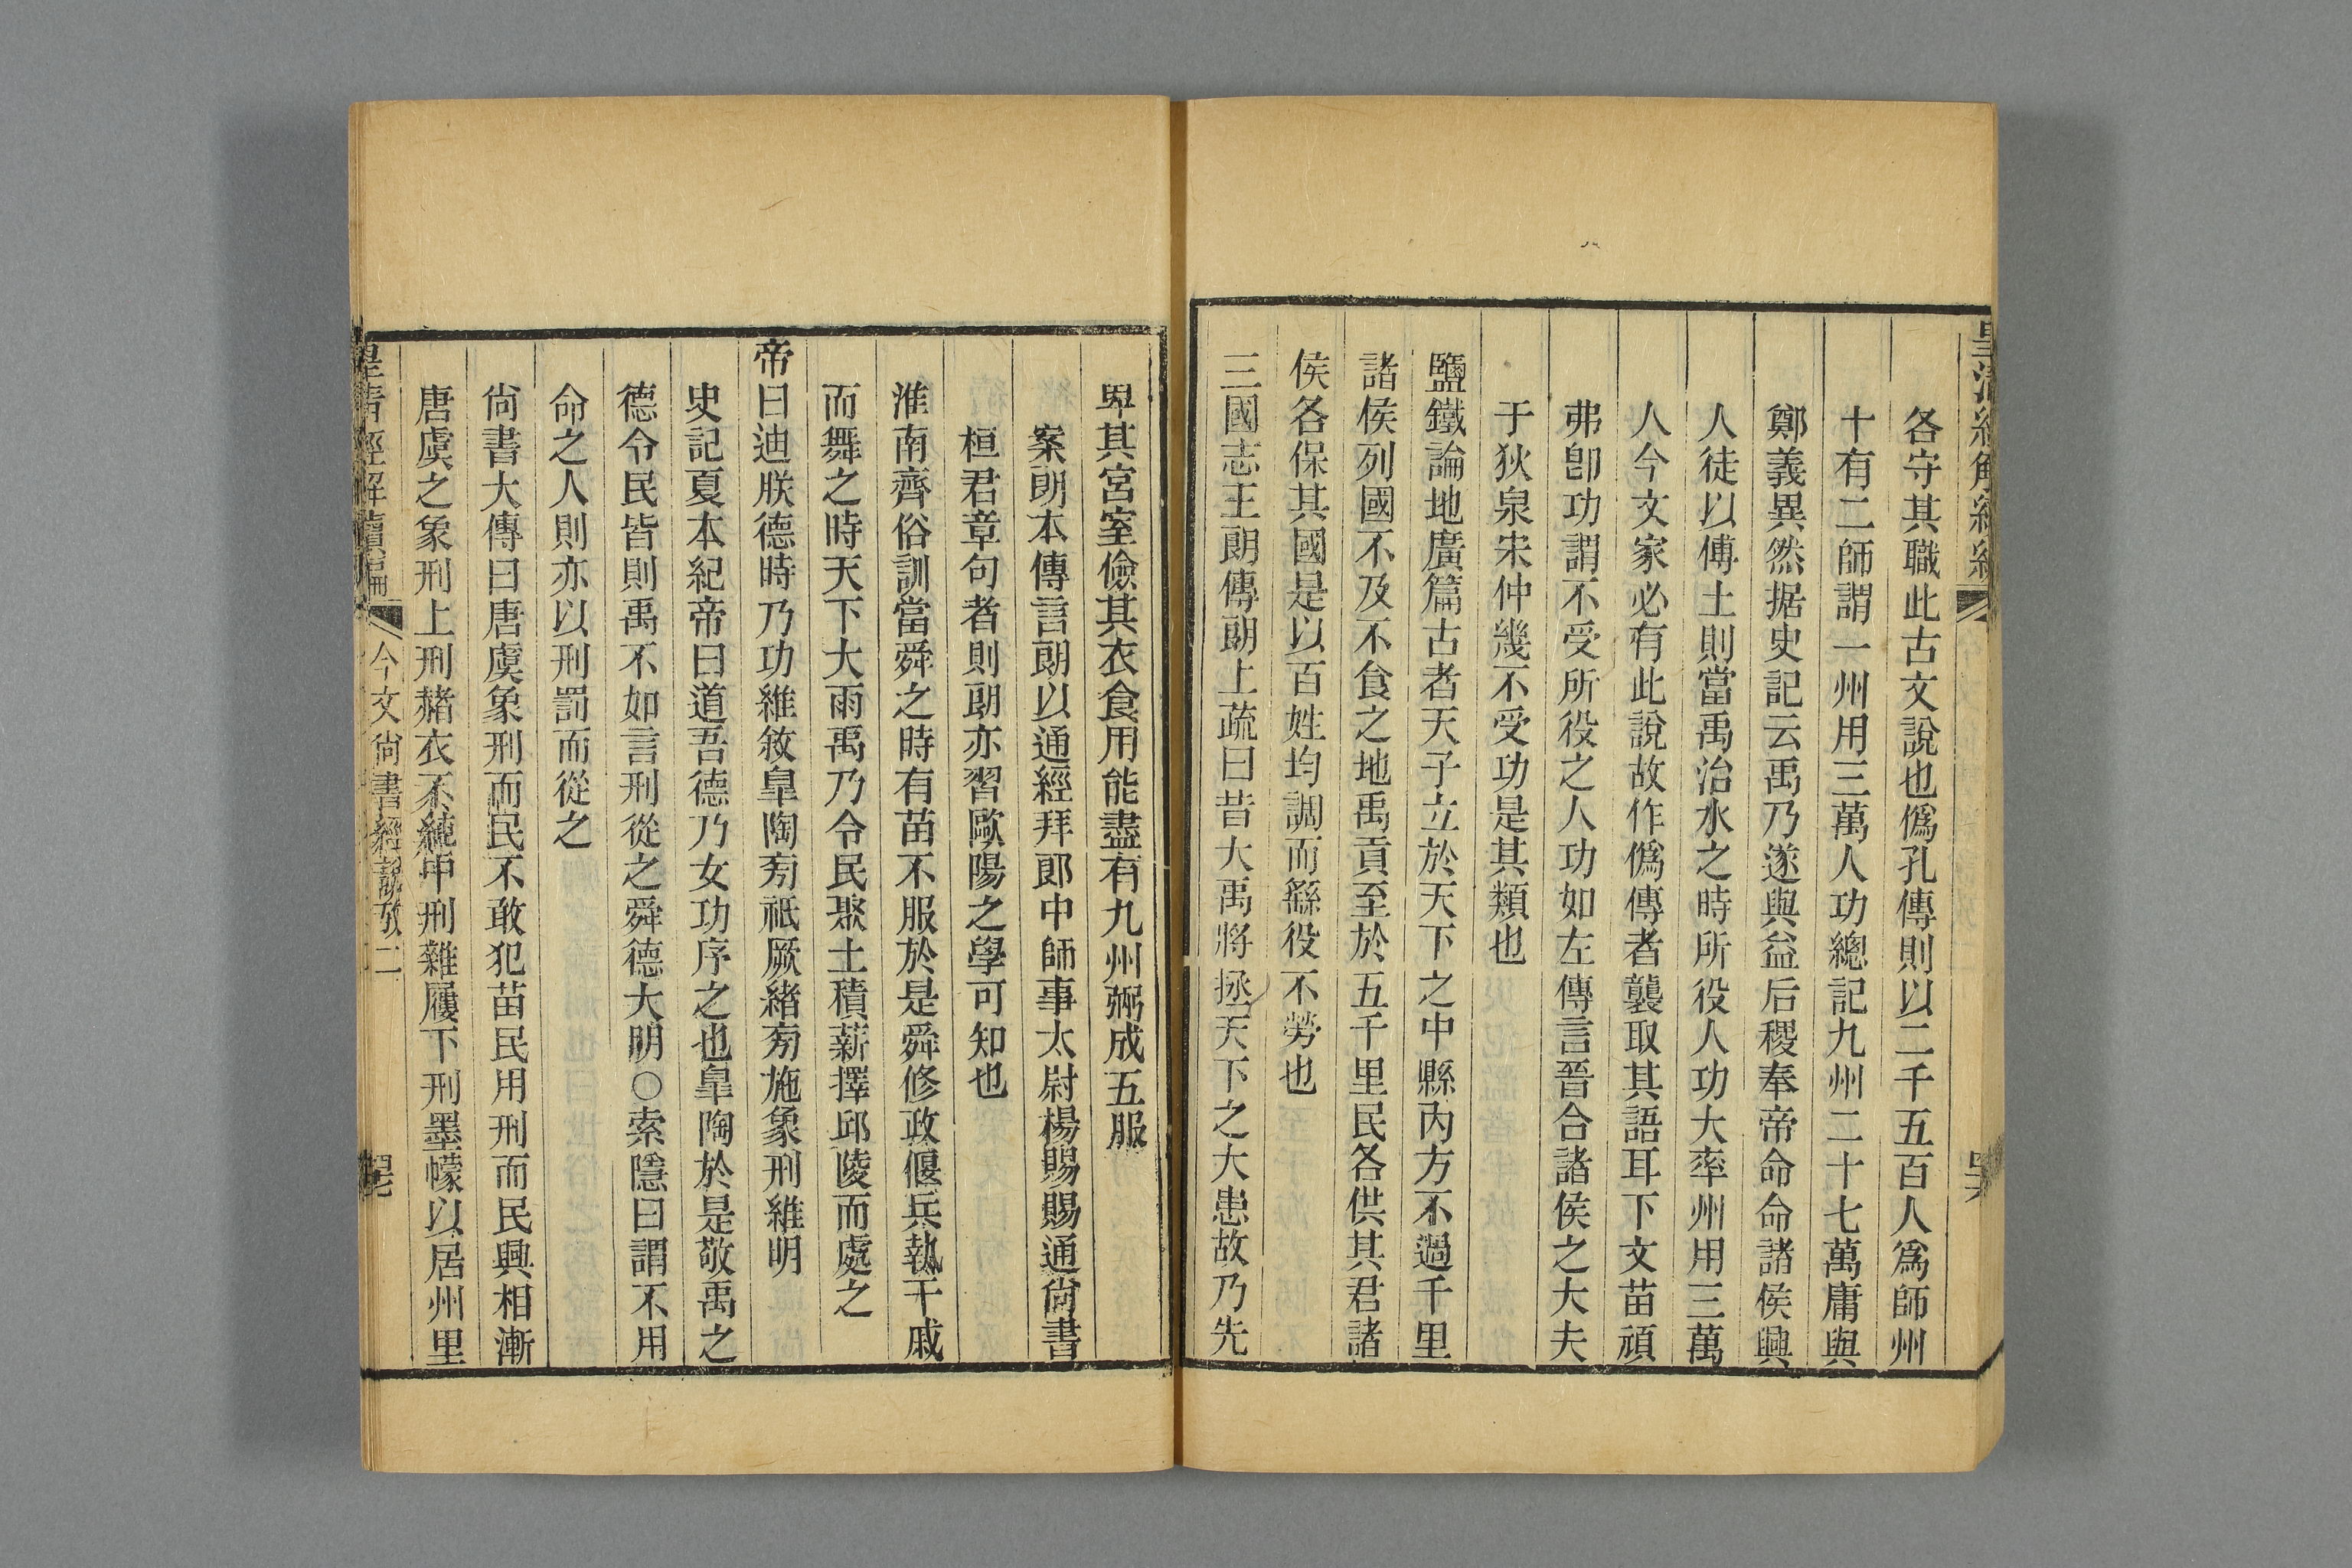 各守其職此古文說也僞孔傳則以二千五百人爲師州
十有二師謂一州用三萬人功總記九州二十七萬庸與
鄭義異然据史記云禹乃遂與益后稷奉帝命命諸侯興
人徒以傅土則當禹治水之時所役人功大率州用三萬
人今文家必有此說故作僞傳者襲取其語耳下文苗頑
弗卽功謂不受所役之人功如左傳言晉合諸侯之大夫
于狄泉宋仲幾不受功是其類也
鹽鐵論地廣篇古者天子立於天下之中縣內方不過千里
諸侯列國不及不食之地禹貢至於五千里民各供其君諸
侯各保其國是以百姓均調而繇役不勞也
三國志王朗傳朗上疏曰昔大禹將拯天下之大患故乃先
卑其宮室儉其衣食用能盡有九州弼成五服
案朗本傳言朗以通經拜郎中師事太尉楊賜賜通尙書
桓君章句者則朗亦習歐陽之學可知也
淮南齊俗訓當舜之時有苗不服於是舜修政偃兵執干戚
而舞之時天下大雨禹乃令民聚土積薪擇邱陵而處之
帝曰迪朕德時乃功維敘皐陶旁祇厥緒旁施象刑維明
史記夏本紀帝曰道吾德乃女功序之也皐陶於是敬禹之
德令民皆則禹不如言刑從之舜德大明○索隱曰謂不用
命之人則亦以刑罰而從之
尙書大傳曰唐虞象刑而民不敢犯苗民用刑而民興相漸
唐虞之象刑上刑赭衣不純中刑雜屨下刑墨幪以居州里
皇淸經解續編
今文尙書經說攷二